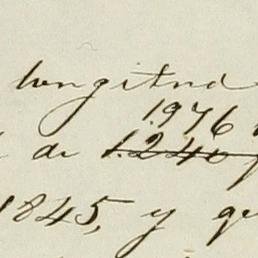 longitud
1.976
de ~~1.240~~
1845, y